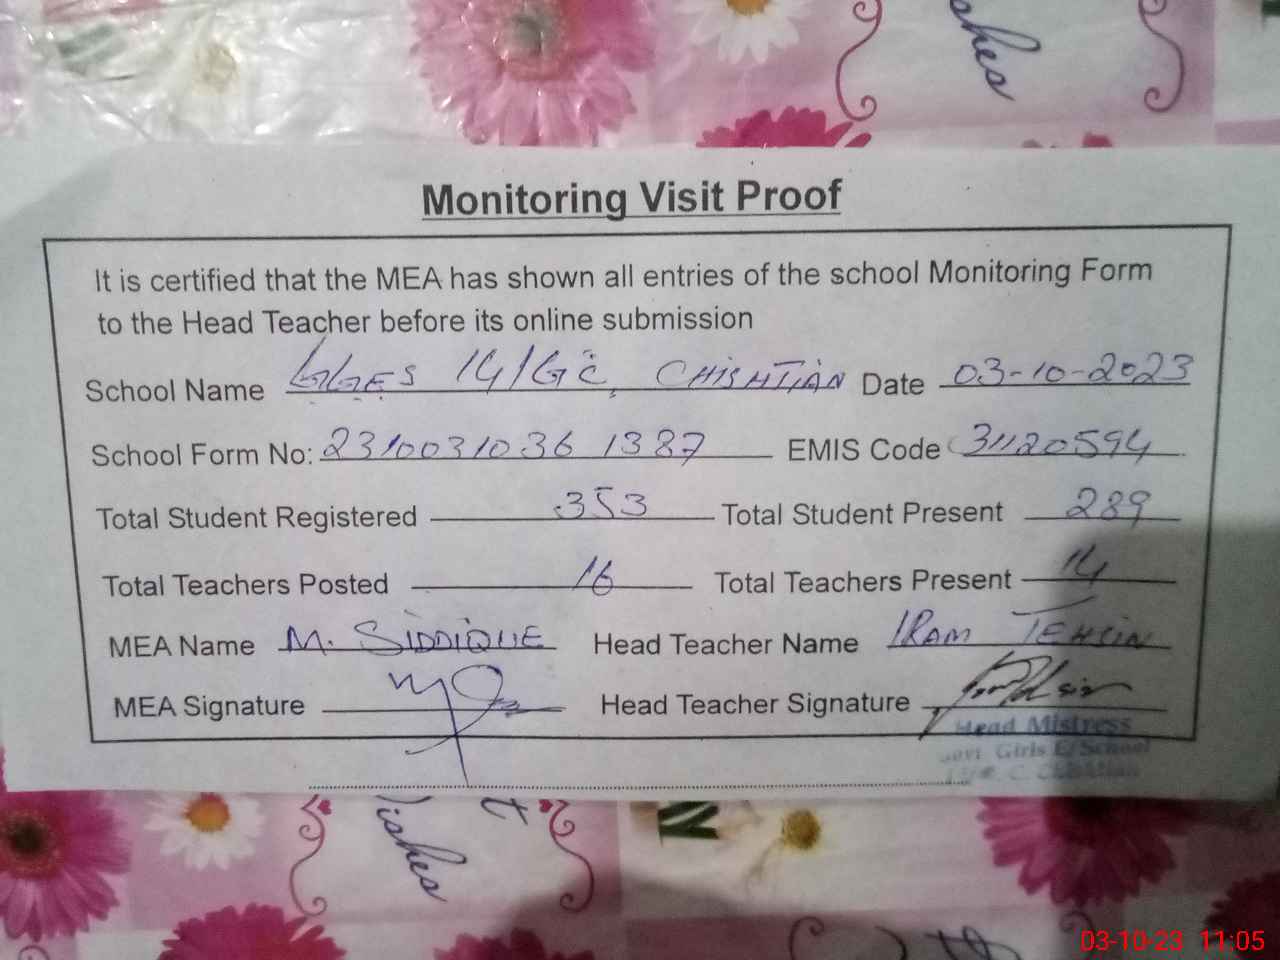 shes
Monitoring Visit Proof
It is certified that the MEA has shown all entries of the school Monitoring Form
to the Head Teacher before its online submission
School Name GGES 14/G.C, CHISHTIAN Date 03-10-2023
School Form No: 2310031036 1387 EMIS Code 31120594
Total Student Registered 353 Total Student Present 289
Total Teachers Posted 16 Total Teachers Present 14
MEA Name M. SIDDIQUE Head Teacher Name IRAM TEHSIN
MEA Signature Head Teacher Signature
Head Mistress
Govt. Girls E/School
ishes
03-10-23 11:05